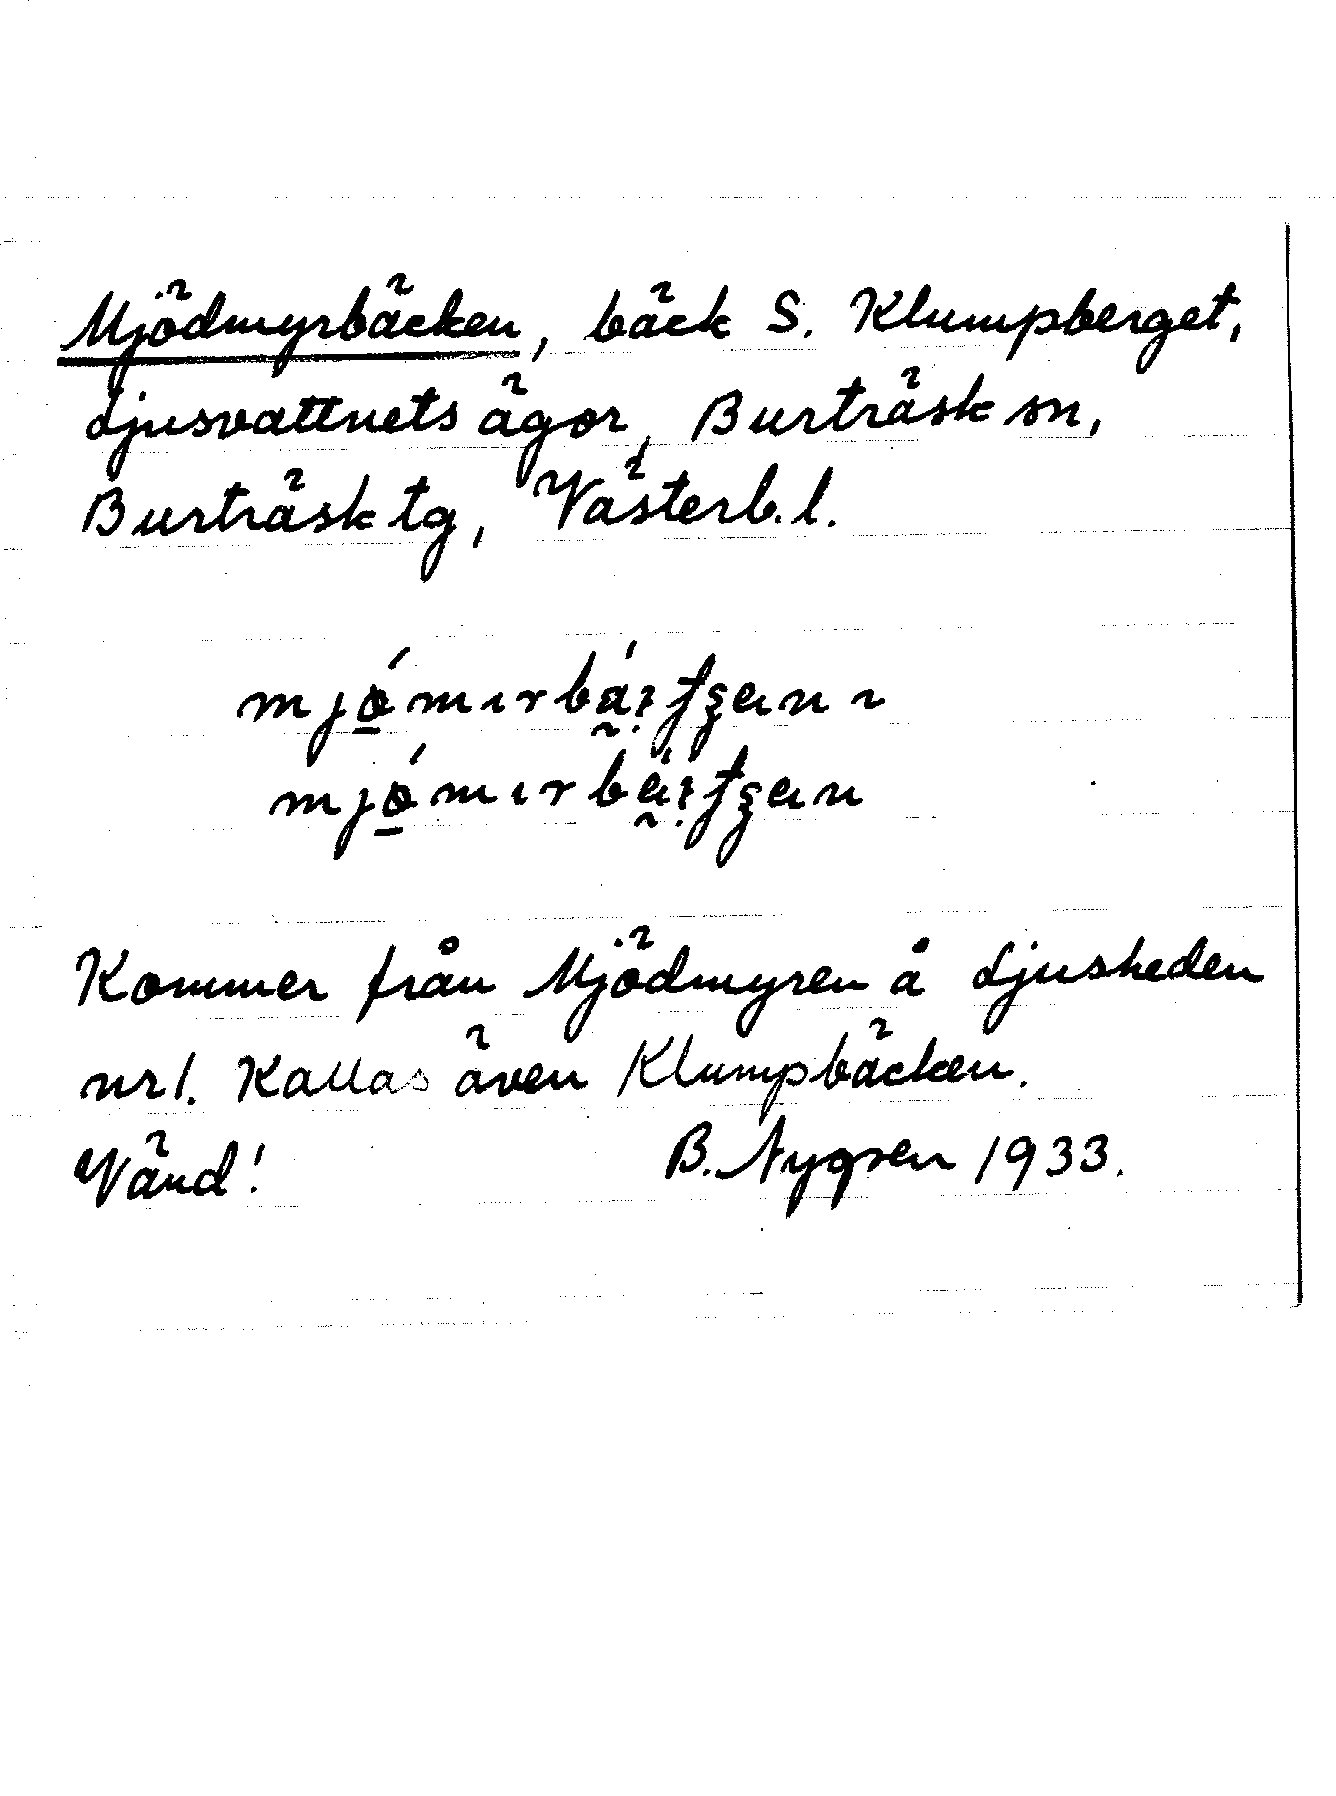 Mjödmyrbäcken, bäck S. Klumpberget,
Ljusvattnets ägor, Burträsk sn,
Burträsk tg, Västerb. l.
Kommer från Mjödmyren å Ljusheden
nr 1. Kallas även Klumpbäcken.
Vänd! B. Nygren 1933.